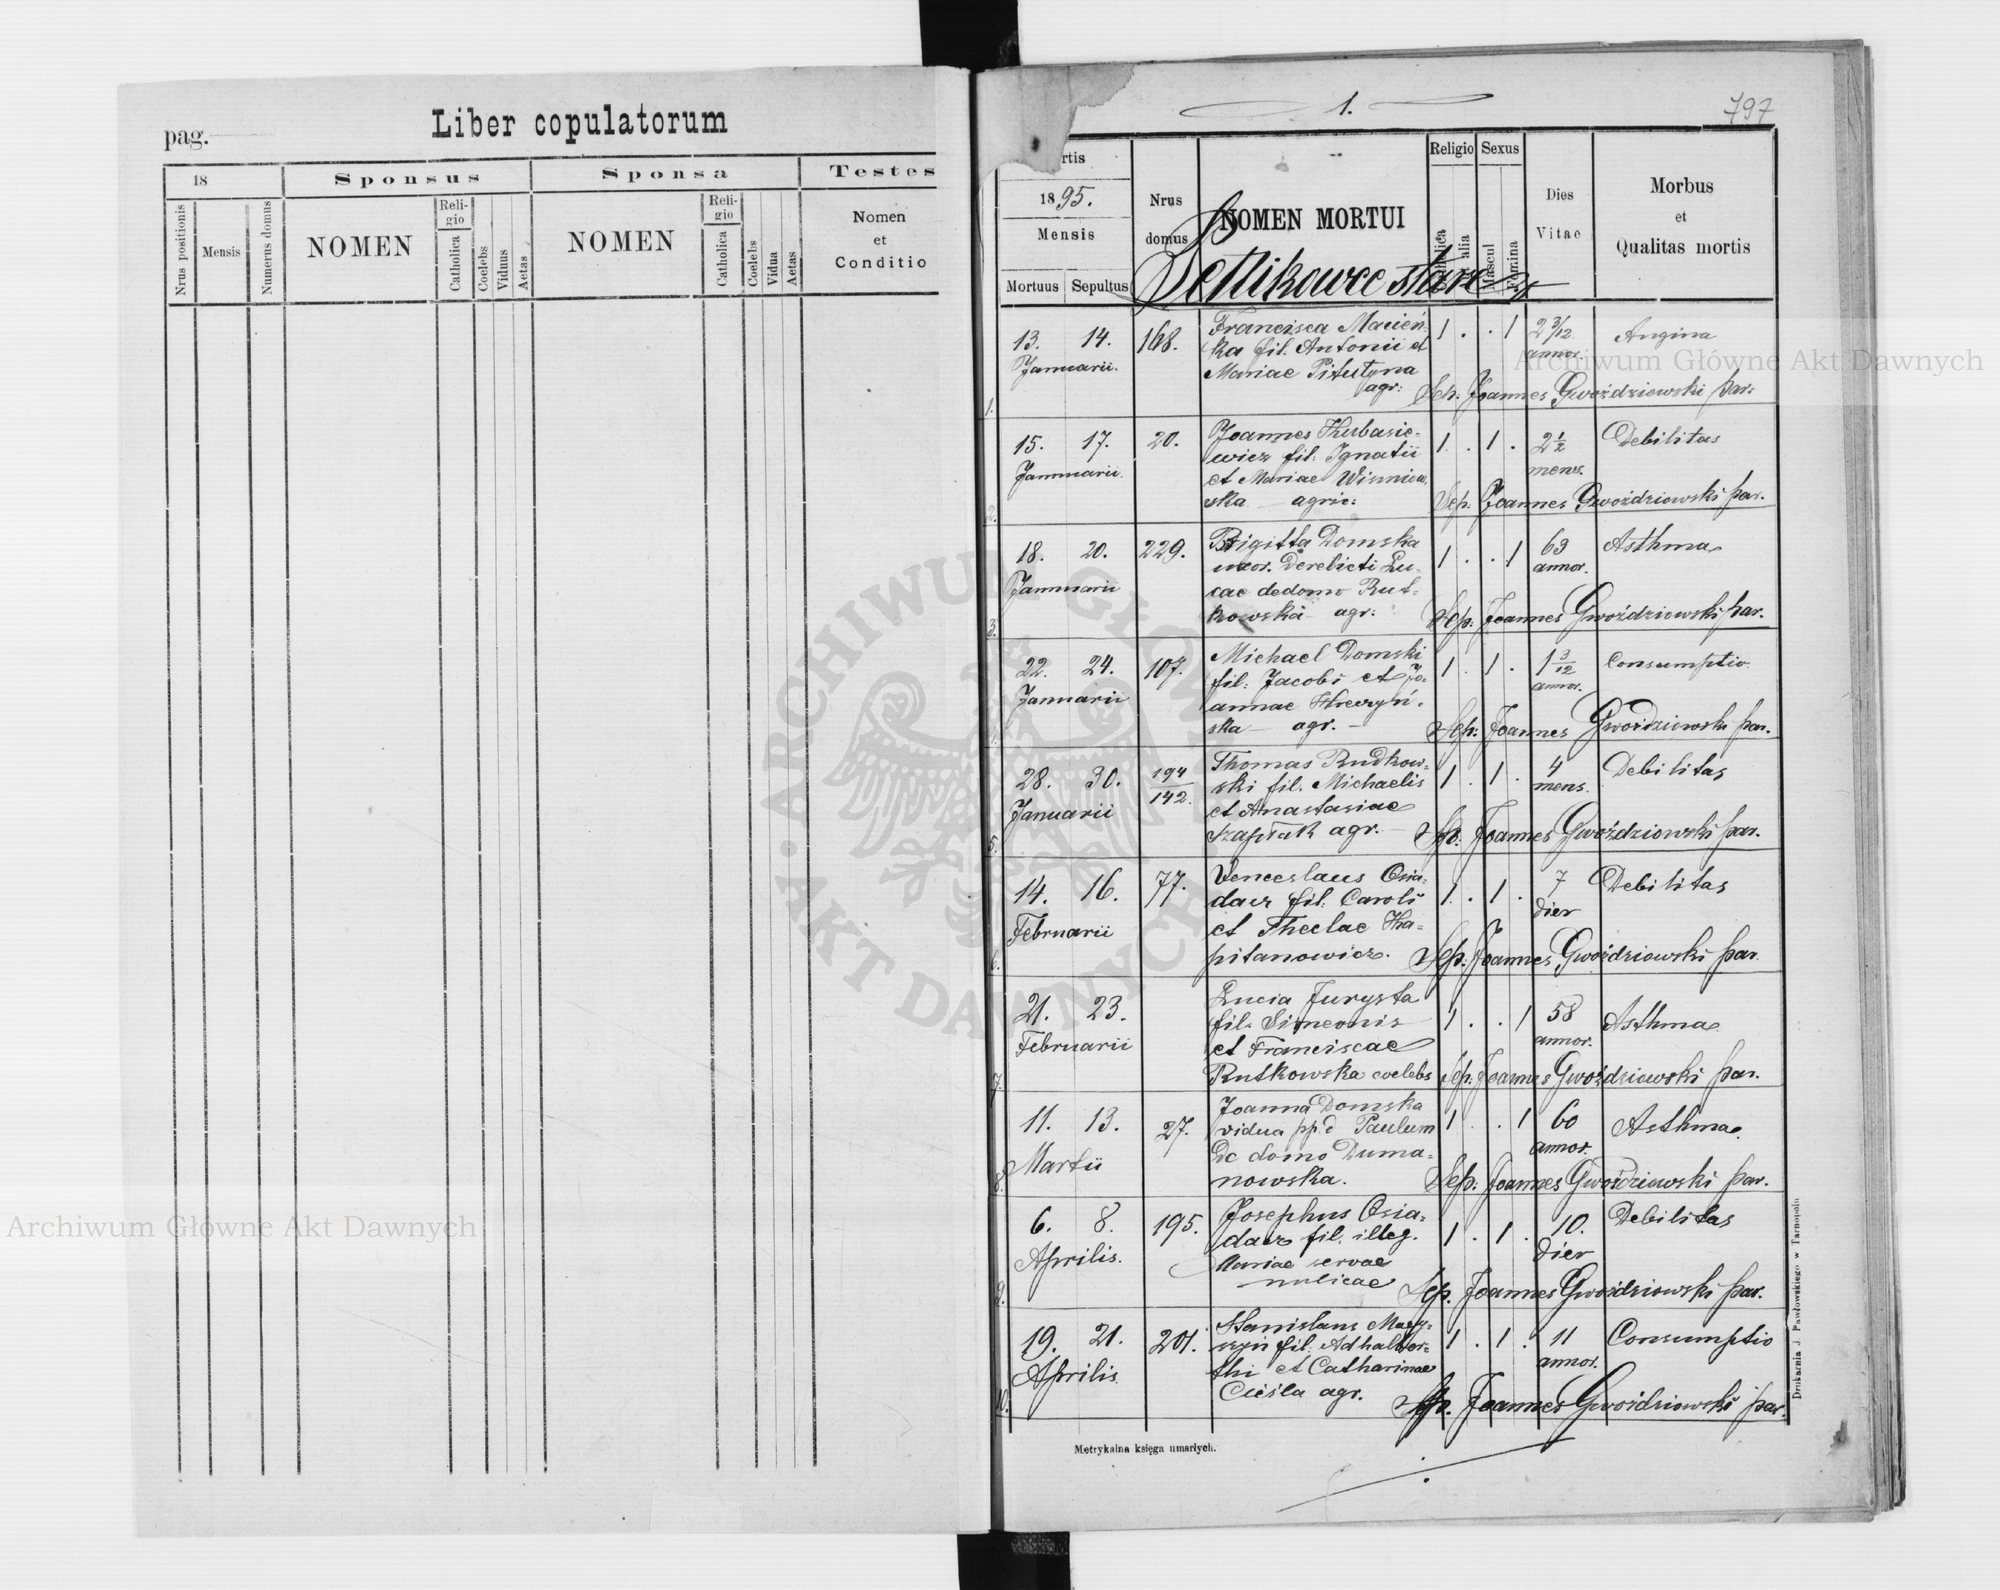 pag.
Liber copulatorum
18
Sponsus
Sponsa
Testes
Nrus positionis
Mensis
Numerus domus
NOMEN
Religio
Catholica
Coelebs
Viduus
Aetas
NOMEN
Religio
Catholica
Coelebs
Vidua
Aetas
Nomen
et
Conditio
1.
797
rtis
1895.
Mensis
Mortuus
Sepultus
Nrus
domus
NOMEN MORTUI
Religio
Sexus
alia
Mascul
Femina
Dies
Vitae
Morbus
et
Qualitas mortis
Petlikowce stare
1.
13. 14. 168. Francisca Macień-
Januarii. ka fil. Antonii et
Mariae Pitutyna
agr:
1 . . 1 2 3/12 annor. Angina
Sep: Joannes Gwoździowski par:
2.
15. 17. 20. Joannes Kurbasie-
Januarii. wicz fil: Ignatii
et Mariae
ska agric:
1 . 1 . 2 1/2 mens. Debilitas
Sep: Joannes Gwoździowski par.
3.
18. 20. 229. Brigitta Domska
Januarii uxor. Derelicti Lu-
cae de domo Rut-
kowska agr:
1 . . 1 63 annor. Asthma
Sep: Joannes Gwoździowski par.
22. 24. 107. Michael Domski
Januarii fil: Jacobi et Jo-
annae
ska agr. –
1 . 1 . 1 3/12 annor. Consumptio
Sep: Joannes Gwoździowski par.
5.
28. 30. 194/142. Thomas Rudkow-
Januarii ski fil. Michaelis
et Anastasiae
Szaptak agr. –
1 . 1 . 4 mens. Debilitas
Sep: Joannes Gwoździowski par.
6.
14. 16. 77. Venceslaus Osia-
Februarii dacz fil: Caroli
et Theclae Ka-
pitanowicz.
1 . 1 . 7 dier Debilitas
Sep: Joannes Gwoździowski par.
7.
21. 23. Lucia Jurysta
Februarii fil. Simeonis
et Franciscae
Rutkowska coelebs
1 . . 1 58 annor. Asthma
Sep: Joannes Gwoździowski par.
8.
11. 13. 27. Joanna Domska
Martii vidua pp. d Paulum
De domo Duma-
nowska.
1 . 1 60 annor. Asthma
Sep: Joannes Gwoździowski par.
9.
6. 8. 195. Josephus Osia-
Aprilis. dacz fil. illeg.
Mariae servae
1 . 1 . 10. dier Debilitas
Sep. Joannes Gwoździowski par.
10.
19. 21. 201. Stanislaus
Aprilis fil. Adhalber-
thi et Catharinae
Cieśla agr.
1 . 1 . 11 annor. Consumptio
Sep. Joannes Gwoździowski par.
Metrykalna księga umarłych.
Drukarnia J. Pawłowskiego w Tarnopolu
Archiwum Główne Akt Dawnych
Archiwum Główne Akt Dawnych
ARCHIWUM GŁÓWNE AKT DAWNYCH